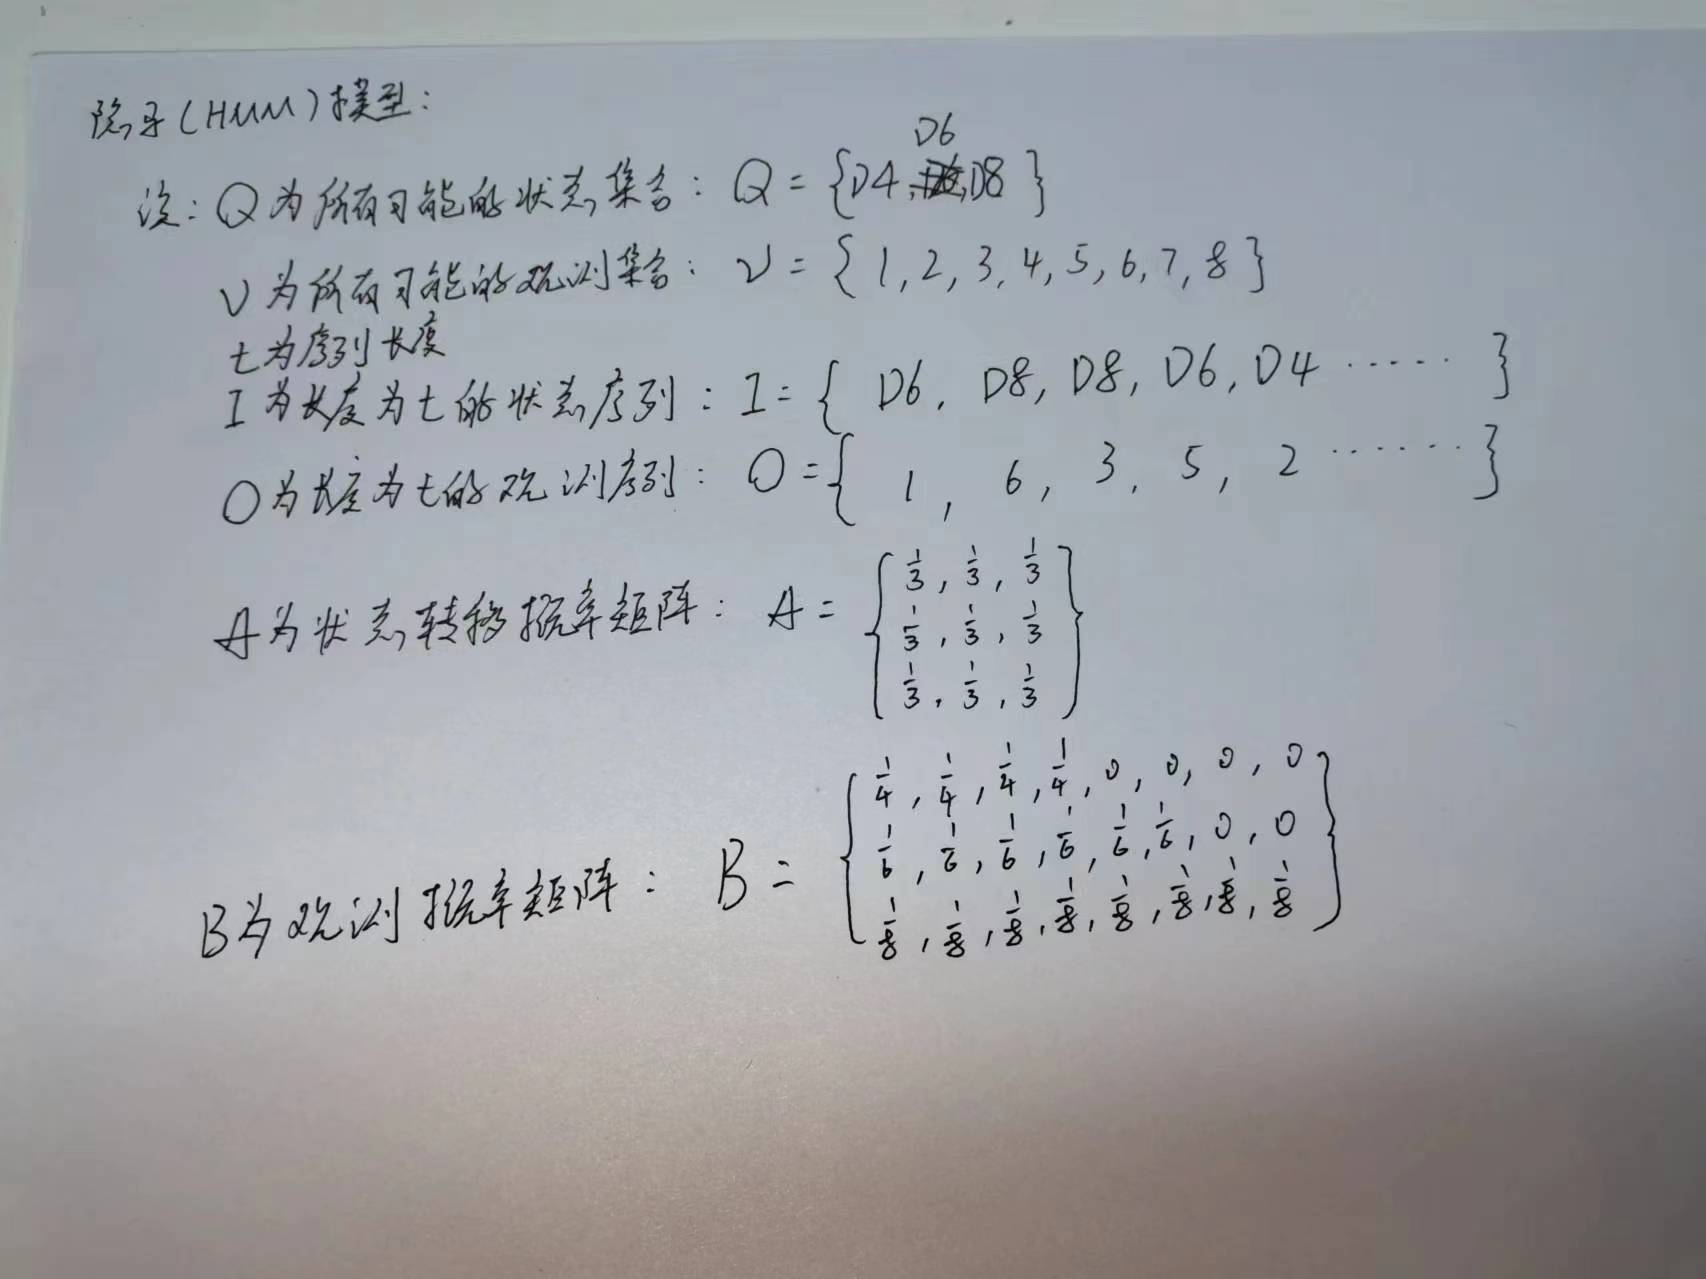 隐马(HMM)模型:
设: Q为所有可能的状态集合: Q = {D4, D6, D8}
V为所有可能的观测集合: V = {1, 2, 3, 4, 5, 6, 7, 8}
t为序列长度
I为长度为t的状态序列: I = { D6, D8, D8, D6, D4 ······ }
O为长度为t的观测序列: O = { 1, 6, 3, 5, 2 ······· }
A为状态转移概率矩阵: A =
{ 1/3, 1/3, 1/3
1/3, 1/3, 1/3
1/3, 1/3, 1/3 }
B为观测概率矩阵: B =
{ 1/4, 1/4, 1/4, 1/4, 0, 0, 0, 0
1/6, 1/6, 1/6, 1/6, 1/6, 1/6, 0, 0
1/8, 1/8, 1/8, 1/8, 1/8, 1/8, 1/8, 1/8 }